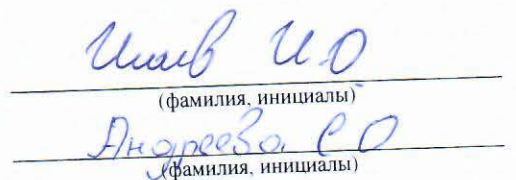 И.О
(фамилия, инициалы)
Андреева С О
(фамилия, инициалы)